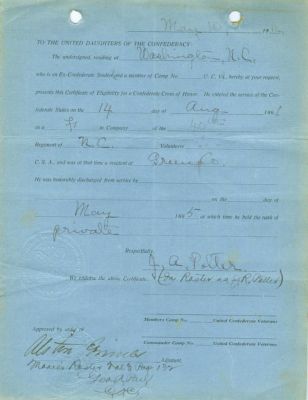 May 10
TO THE UNITED DAUGHTERS OF THE CONFEDERACY:
The undersigned, residing at Washington, N.C.
who is an Ex-Confederate Soldier and a member of Camp No. U. C. V., hereby at your request,
presents this Certificate of Eligibility for a Confederate Cross of Honor. He entered the service of the Con-
federate States on the 14 day of Aug 186
as a in Company of the
Regiment of N.C. Volunteers
C. S. A., and was at that time a resident of Green Co.
He was honorably discharged from service by
on the day of
May 1865 at which time he held the rank of
private
Respectfully
J. A. Potter
We endorse the above Certificate. (on Roster as J. R. Potter)
Members Camp No. United Confederate Veterans
Commander Camp No. United Confederate Veterans
Approved by
Adjutant.
Alston Grimes
Moore's Roster Vol 3 Page 132